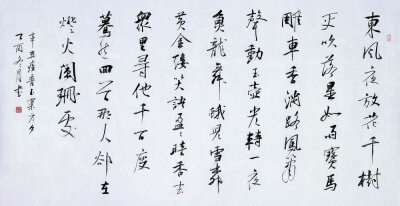 東風夜放花千樹
更吹落星如雨寶馬
雕車香滿路鳳簫
聲動玉壺光轉一夜
魚龍舞蛾兒雪柳
黃金縷笑語盈盈暗香去
眾里尋他千百度
驀然回首那人卻在
燈火闌珊處
辛棄疾青玉案元夕
丁酉冬月書